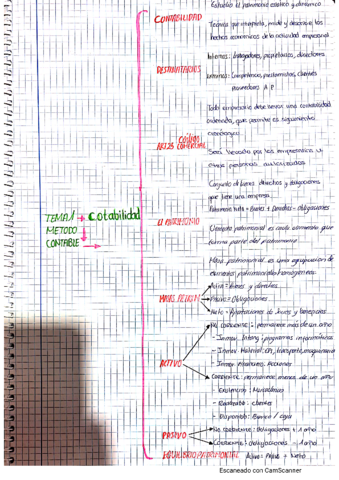 Estudia el patrimonio estático y dinámico
CONTABILIDAD
Técnica que interpreta, mide y describe los
hechos económicos de la actividad empresarial
Internos: trabajadores, propietarios, directores
DESTINATARIOS
Externos: Competencia, prestamistas, clientes
Proveedores A.P
Todo empresario debe llevar una contabilidad
ordenada, que permita el seguimiento
cronológico
CÓDIGO
ART.25 COMERCIAL
Será llevada por los empresarios u
otras personas autorizadas
Conjunto de bienes derechos y obligaciones
que tiene una empresa
TEMA 1 → Cotabilidad
Patrimonio neto = Bienes + Derechos - obligaciones
EL PATRIMONIO
METODO
Elemento patrimonial es cada elemento que
CONTABLE →
forma parte del patrimonio
Masa patrimonial es una agrupación de
elementos patrimoniales homogéneos
Activo = Bienes y derechos
MASAS PATRIM
Pasivo = Obligaciones
Neto = Aportaciones de socios y beneficios
No corriente: permanece más de un año
- Inmov. Intang: programas informáticos
- Inmov Material: transporte, maquinaria
- Inmov financiero: Acciones
ACTIVO
Corriente: permanece menos de un año
- Existencias: Mercaderías
- Realizable: clientes
- Disponible: Banco / caja
No corriente: obligaciones + 1 año
PASIVO
Corriente: obligaciones - 1 año
EQUILIBRIO PATRIMONIAL
Activo = Pasivo + Neto
Escaneado con CamScanner